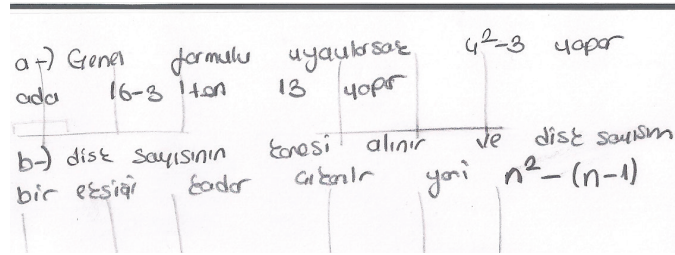 a-) Genel formulu uygularsak 4²-3 yapar
ada 16-3 'ten 13 yapar
b-) disk sayısının karesi alınır ve disk sayısın
bir eksiği kadar çıkarılır yani n²-(n-1)